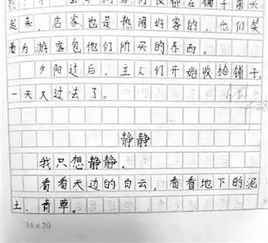 起来,店客也是热闹好客的,他们笑
看为游客包他们所买的东西。
夕阳过后,主人们开始收给铺子,
一天又过去了。
静静
我只想静静。
看看天边的白云,看看地下的泥
土、青草。
16×20